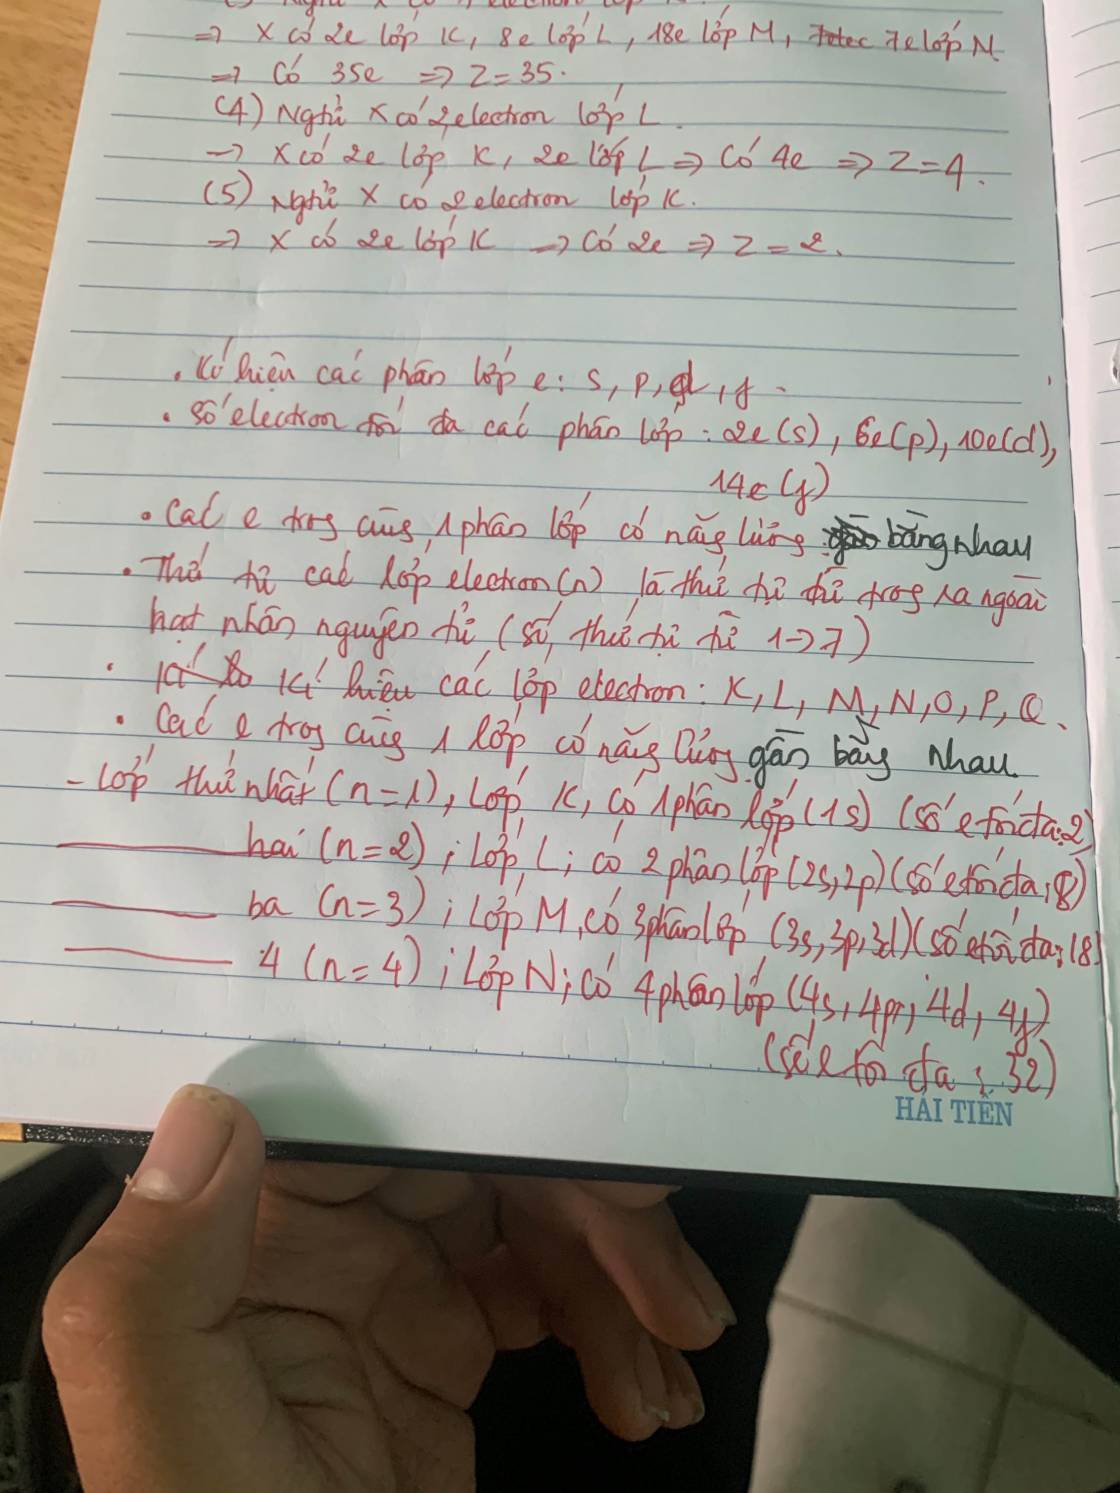 ⇒ X có 2e lớp K, 8e lớp L, 18e lớp M, 7e lớp N
⇒ Có 35e ⇒ Z = 35.
(4) Nghĩ X có 2 electron lớp L.
→ X có 2e lớp K, 2e lớp L ⇒ Có 4e ⇒ Z = 4.
(5) Nghĩ X có 2 electron lớp K.
→ X có 2e lớp K → Có 2e ⇒ Z = 2.
. Kí hiệu các phân lớp e: s, p, d, f.
. Số electron tối đa các phân lớp: 2e(s), 6e(p), 10e(d),
14e (f)
. Các e trog cùng 1 phân lớp có năg lượng bằng nhau
. Thứ tự các lớp electron (n) là thứ tự từ trog ra ngoài
hạt nhân nguyên tử (số thứ tự từ 1→7)
. Kí hiệu các lớp electron: K, L, M, N, O, P, Q.
. Các e trog cùng 1 lớp có năg lượng gần bằg nhau.
- Lớp thứ nhất (n=1), lớp K, có 1 phân lớp (1s) (số e tối đa: 2)
hai (n=2); lớp L; có 2 phân lớp (2s, 2p) (số e tối đa: 8)
ba (n=3); lớp M, có 3 phân lớp (3s, 3p, 3d) (số e tối đa: 18)
4 (n=4); lớp N; có 4 phân lớp (4s, 4p, 4d, 4f)
(số e tối đa: 32)
HẢI TIẾN